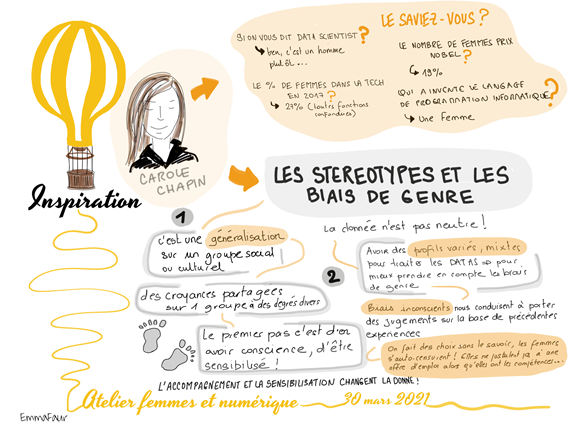 LE SAVIEZ-VOUS ?
SI ON VOUS DIT DATA SCIENTIST ?
ben, c'est un homme
plutôt...
LE % DE FEMMES DANS LA TECH
EN 2017 ?
27% (toutes fonctions
confondues)
LE NOMBRE DE FEMMES PRIX
NOBEL ?
19%
QUI A INVENTÉ LE LANGAGE
DE PROGRAMMATION INFORMATIQUE ?
une Femme
CAROLE
CHAPIN
Inspiration
LES STEREOTYPES ET LES
BIAIS DE GENRE
1
c'est une généralisation
sur un groupe social
ou culturel
des croyances partagées
sur 1 groupe à des degrés divers
Le premier pas c'est d'en
avoir conscience, d'être
sensibilisé !
La donnée n'est pas neutre !
2
Avoir des profils variés, mixtes
pour traiter les DATAS pour
mieux prendre en compte les biais
de genre
Biais inconscients nous conduisent à porter
des jugements sur la base de précédentes
experiences
On fait des choix sans le savoir, les femmes
s'auto-censurent ! Elles ne postulent pas à une
offre d'emploi alors qu'elles ont les compétences...
L'ACCOMPAGNEMENT ET LA SENSIBILISATION CHANGENT LA DONNE !
Atelier femmes et numérique 30 mars 2021
EmmaFaur